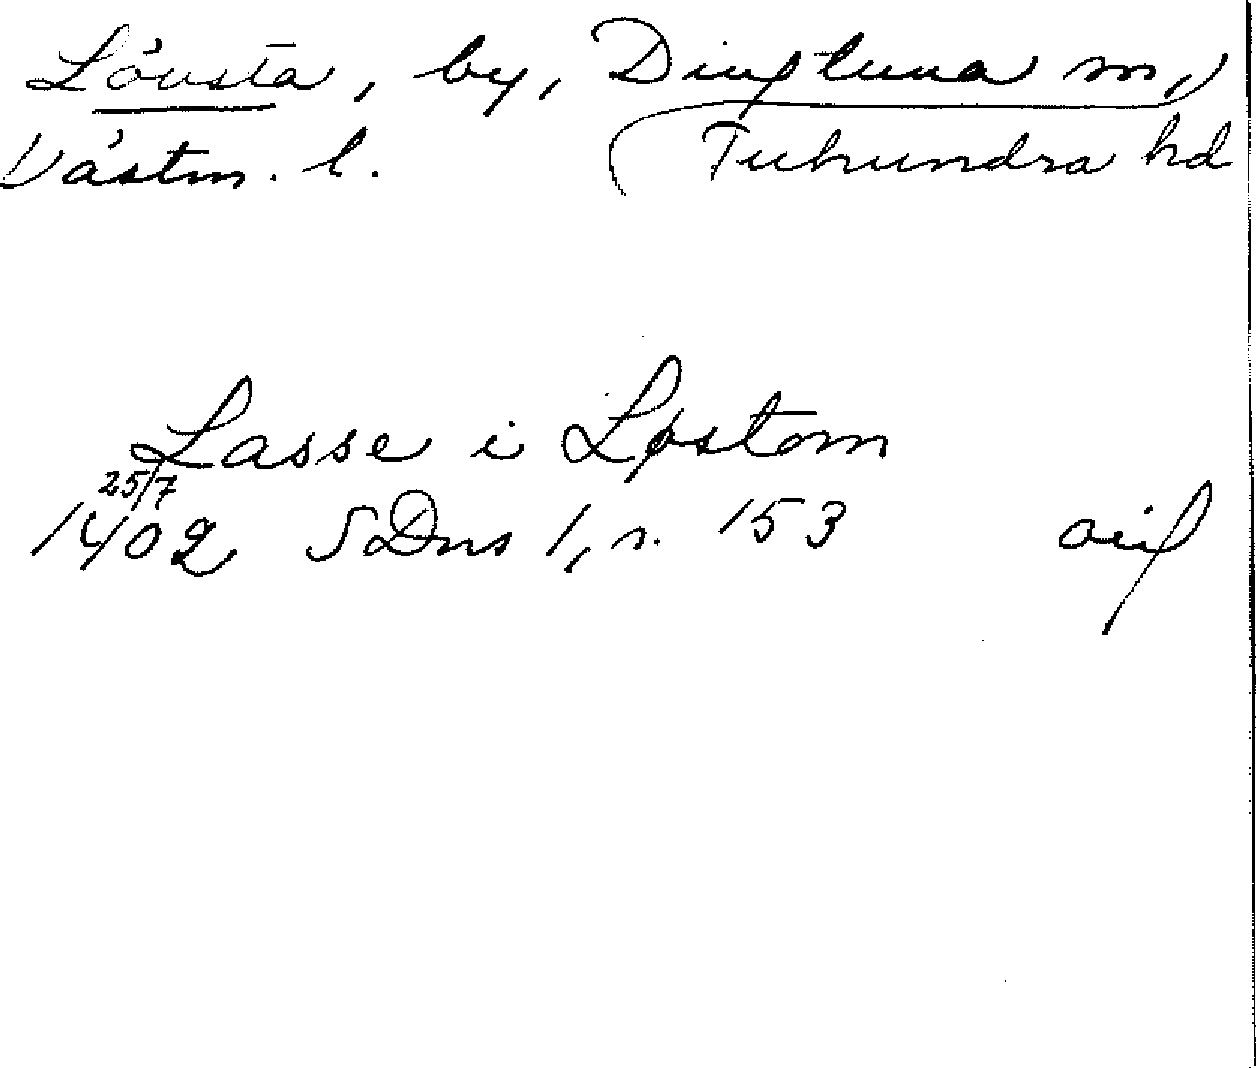 Lövsta, by, Dingtuna sn,
Västm. l. Tuhundra hd
Lasse i Løstom
25/7
1402 SDns 1, s. 153 orig